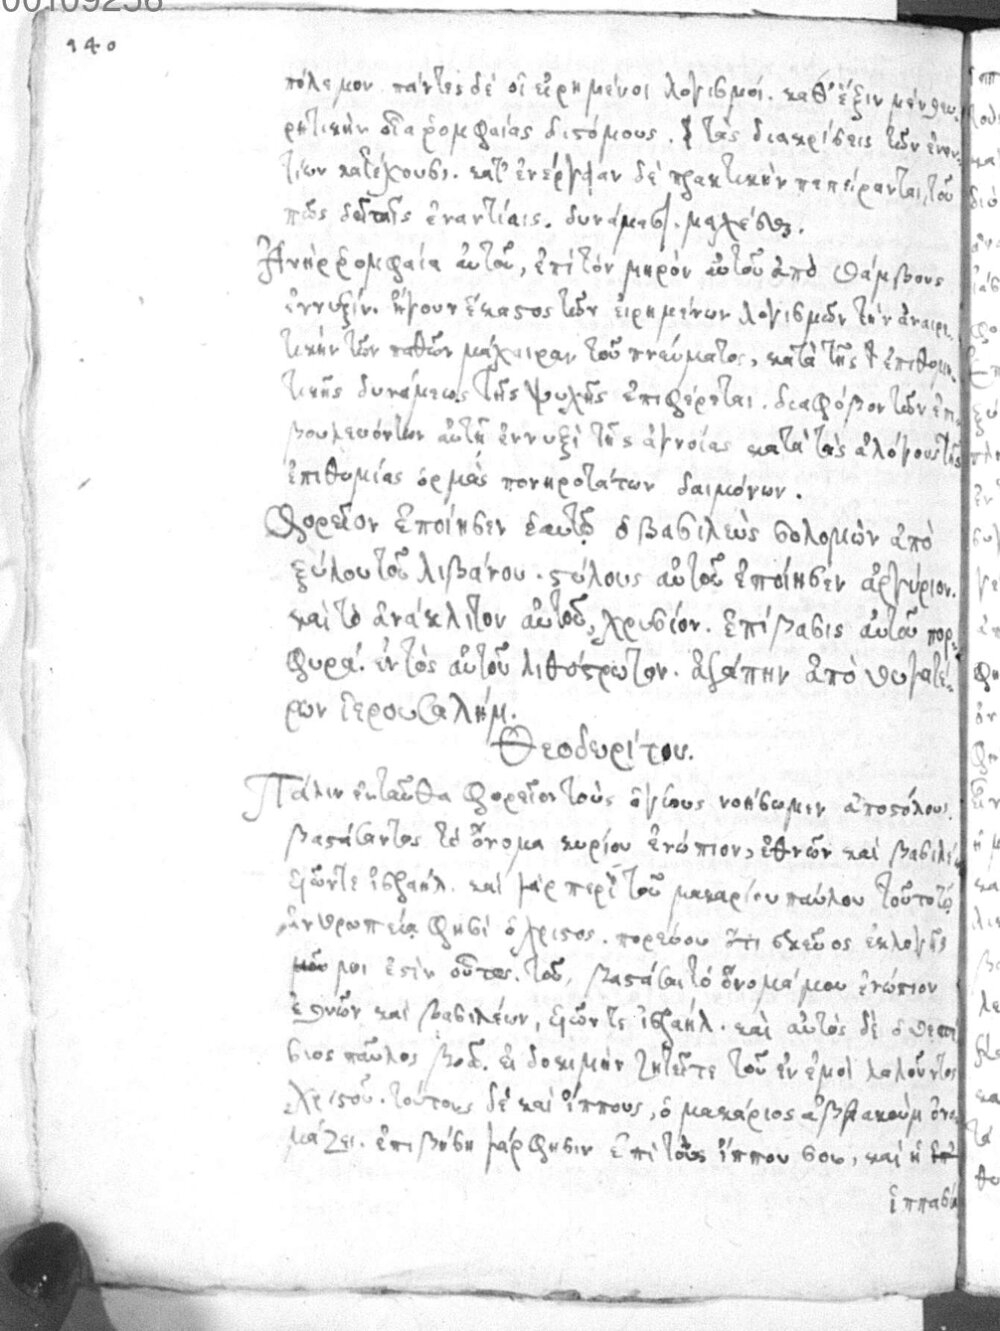 00109256
140
πόλεμον πάντες δὲ οἱ εἰρημένοι λογισμοί. καθ' ἕξιν μὲν θεω-
ρητικὴν οἷα ῥομφαίας διστόμους. τὰς διακρίσεις τῶν ἐναν-
τίων κατέχουσι. κατ' ἐνέργειαν δὲ πρακτικὴν πεπείρανται, τοῦ
πῶς δεῖ ταῖς ἐναντίαις. δυνάμεσι. μάχεσθαι.
Ἀνὴρ ῥομφαία αὐτοῦ, ἐπὶ τὸν μηρὸν αὐτοῦ ἀπὸ θάμβους
ἐν νυξίν. ἤγουν ἕκαστος τῶν εἰρημένων λογισμῶν τὴν ἀναιρε-
τικὴν τῶν παθῶν μάχαιραν τοῦ πνεύματος, κατὰ τῆς ἐπιθυμη-
τικῆς δυνάμεως τῆς ψυχῆς ἐπιφέρεται. διὰ φόβον τῶν ἐπι-
βουλευόντων αὐτῇ ἐν νυξὶ τῆς ἀγνοίας κατὰ τὰς ἀλόγους τῆς
ἐπιθυμίας ὁρμὰς πονηροτάτων δαιμόνων.
Φορεῖον ἐποίησεν ἑαυτῷ ὁ βασιλεὺς σολομὼν ἀπὸ
ξύλου τοῦ λιβάνου. στύλους αὐτοῦ ἐποίησεν ἀργύριον.
καὶ τὸ ἀνάκλιτον αὐτοῦ, χρυσίον. ἐπίβασις αὐτοῦ πορ-
φυρά. ἐντὸς αὐτοῦ λιθόστρωτον. ἀγάπην ἀπὸ θυγατέ-
ρων ἱερουσαλήμ.
Θεοδωρίτου.
Πάλιν ἐνταῦθα φορεῖον τοὺς ἁγίους νοήσωμεν ἀποστόλους.
βαστάσαντας τὸ ὄνομα κυρίου ἐνώπιον, ἐθνῶν καὶ βασιλέων
υἱῶν τε ἰσραήλ. καὶ γὰρ περὶ τοῦ μακαρίου παύλου τοῦτο τῷ
ἀνανία φησὶ ὁ χριστος. πορεύου ὅτι σκεῦος ἐκλογῆς
μοι ἐστὶν οὗτος. τοῦ, βαστάσαι τὸ ὄνομά μου ἐνώπιον
ἐθνῶν καὶ βασιλέων, υἱῶν τε ἰσραήλ. καὶ αὐτὸς δὲ ὁ θεσπέ
σιος παῦλος βοᾷ. εἰ δοκιμὴν ζητεῖτε τοῦ ἐν ἐμοὶ λαλοῦντος
χριστοῦ. τούτους δὲ καὶ ἵππους, ὁ μακάριος ἀββακοὺμ ὀνο
μάζει. ἐπιβήση γάρ φησιν ἐπὶ τοὺς ἵππου σου, καὶ ἡ
ἱππασία